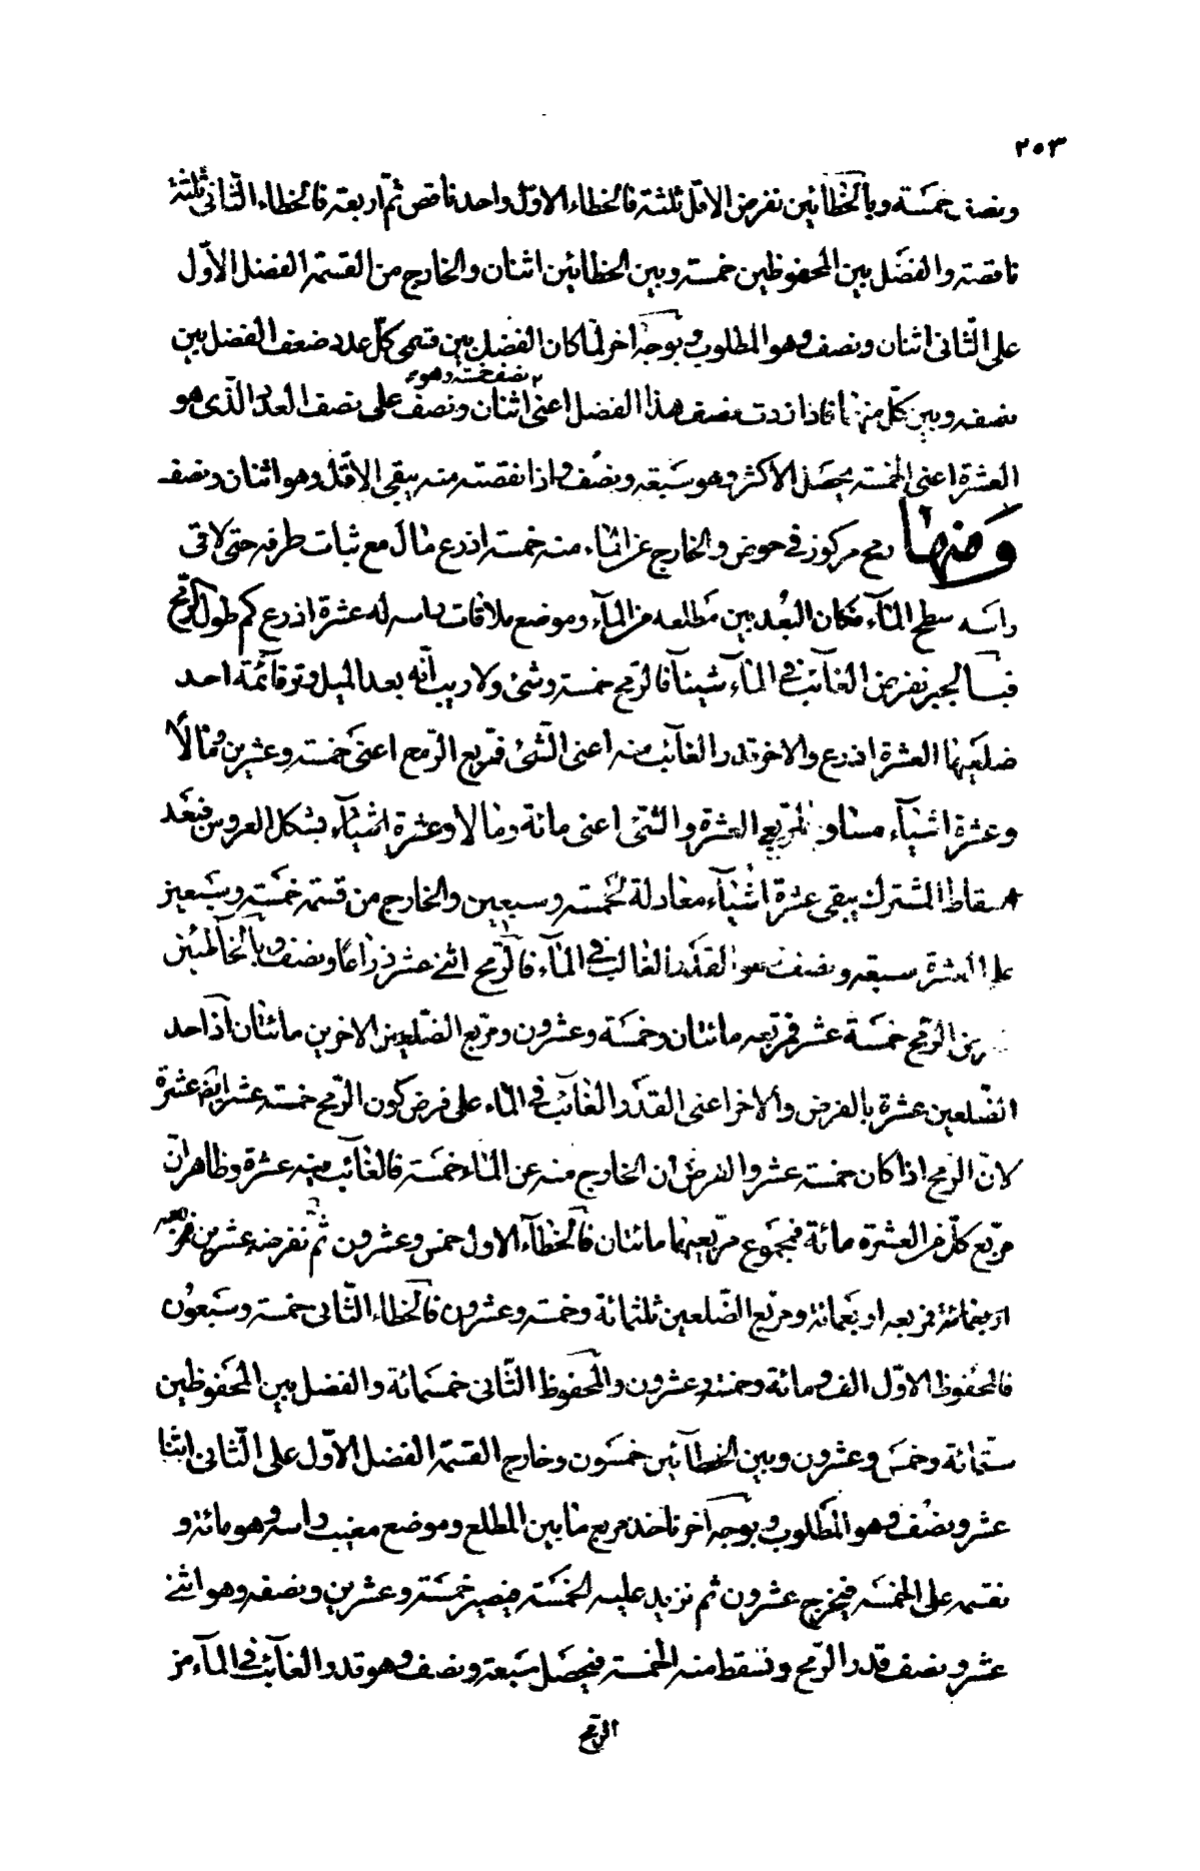 ٢٥٣
ونصف خمسة وبالخطائين نفرض الاقل ثلثة فالخطاء الاول واحد ناقص ثم اربعة فالخطاء الثانى ثلثة
ناقصة والفضل بين المحفوظين خمسة وبين الخطائين اثنان والخارج من القسمة الفضل الاول
على الثانى اثنان ونصف وهو المطلوب وبوجه آخر لما كان الفضل بين قسمى كل عدد ضعف الفضل بين
نصف خمسة وهو
نصفه وبين كل منهما فاذا زدت نصف هذا الفضل اعنى اثنان ونصف على نصف العدد الذى هو
العشرة اعنى الخمسة يحصل الاكثر وهو سبعة ونصف واذا نقصته منه يبقى الاقل وهو اثنان ونصف
ومنها رمح مركوز فى حوض والخارج عن الماء منه خمسة اذرع مال مع ثبات طرفه حتى لاقى
راسه سطح الماء فكان البعد بين مطلعه من الماء وموضع ملاقات راسه له عشرة اذرع كم طول الرمح
فبالجبر نفرض الغائب فى الماء شيئا فالرمح خمسة وشئ ولا ريب انه بعد الميل وتر قائمة احد
ضلعيها العشرة اذرع والاخر قدر الغائب منه اعنى الشئ فمربع الرمح اعنى خمسة وعشرين ومالا
وعشرة اشياء مساو لمربعى العشرة والشئ اعنى مائة ومالا وعشرة اشياء بشكل العروس فبعد
اسقاط المشترك يبقى عشرة اشياء معادلة لخمسة وسبعين والخارج من قسمة خمسة وسبعين
على العشرة سبعة ونصف هو القدر الغائب فى الماء فالرمح اثنى عشر ذراعا ونصف وبالخطائين
نفرض الرمح خمسة عشر فمربعه مائتان وخمسة وعشرون ومربع الضلعين الاخرين مائتان اذ احد
الضلعين عشرة بالفرض والاخر اعنى القدر الغائب فى الماء على فرض كون الرمح خمسة عشر ايضا عشرة
لان الرمح اذا كان خمسة عشر والفرض ان الخارج منه عن الماء خمسة فالغائب منه عشرة وظاهر ان
مربع كل من العشرة مائة فمجموع مربعيهما مائتان فالخطاء الاول خمس وعشرون ثم نفرضه عشرين فمربعه
اربعمائة فربعه اربعمائة ومربع الضلعين ثلثمائة وخمسة وعشرون فالخطاء الثانى خمسة وسبعون
فالمحفوظ الاول الف ومائة وخمسة وعشرون والمحفوظ الثانى خمسمائة والفضل بين المحفوظين
ستمائة وخمس وعشرون وبين الخطائين خمسون وخارج القسمة الفضل الاول على الثانى اثنا
عشر ونصف وهو المطلوب وبوجه آخر ناخذ مربع ما بين المطلع وموضع مغيب راسه وهو مائة و
نقسمه على الخمسة فيخرج عشرون ثم نزيد عليه الخمسة فيصير خمسة وعشرين ونصفه وهو اثنى
عشر ونصف قدر الرمح ونسقط منه الخمسة فيحصل سبعة ونصف وهو قدر الغائب فى الماء من
الرمح